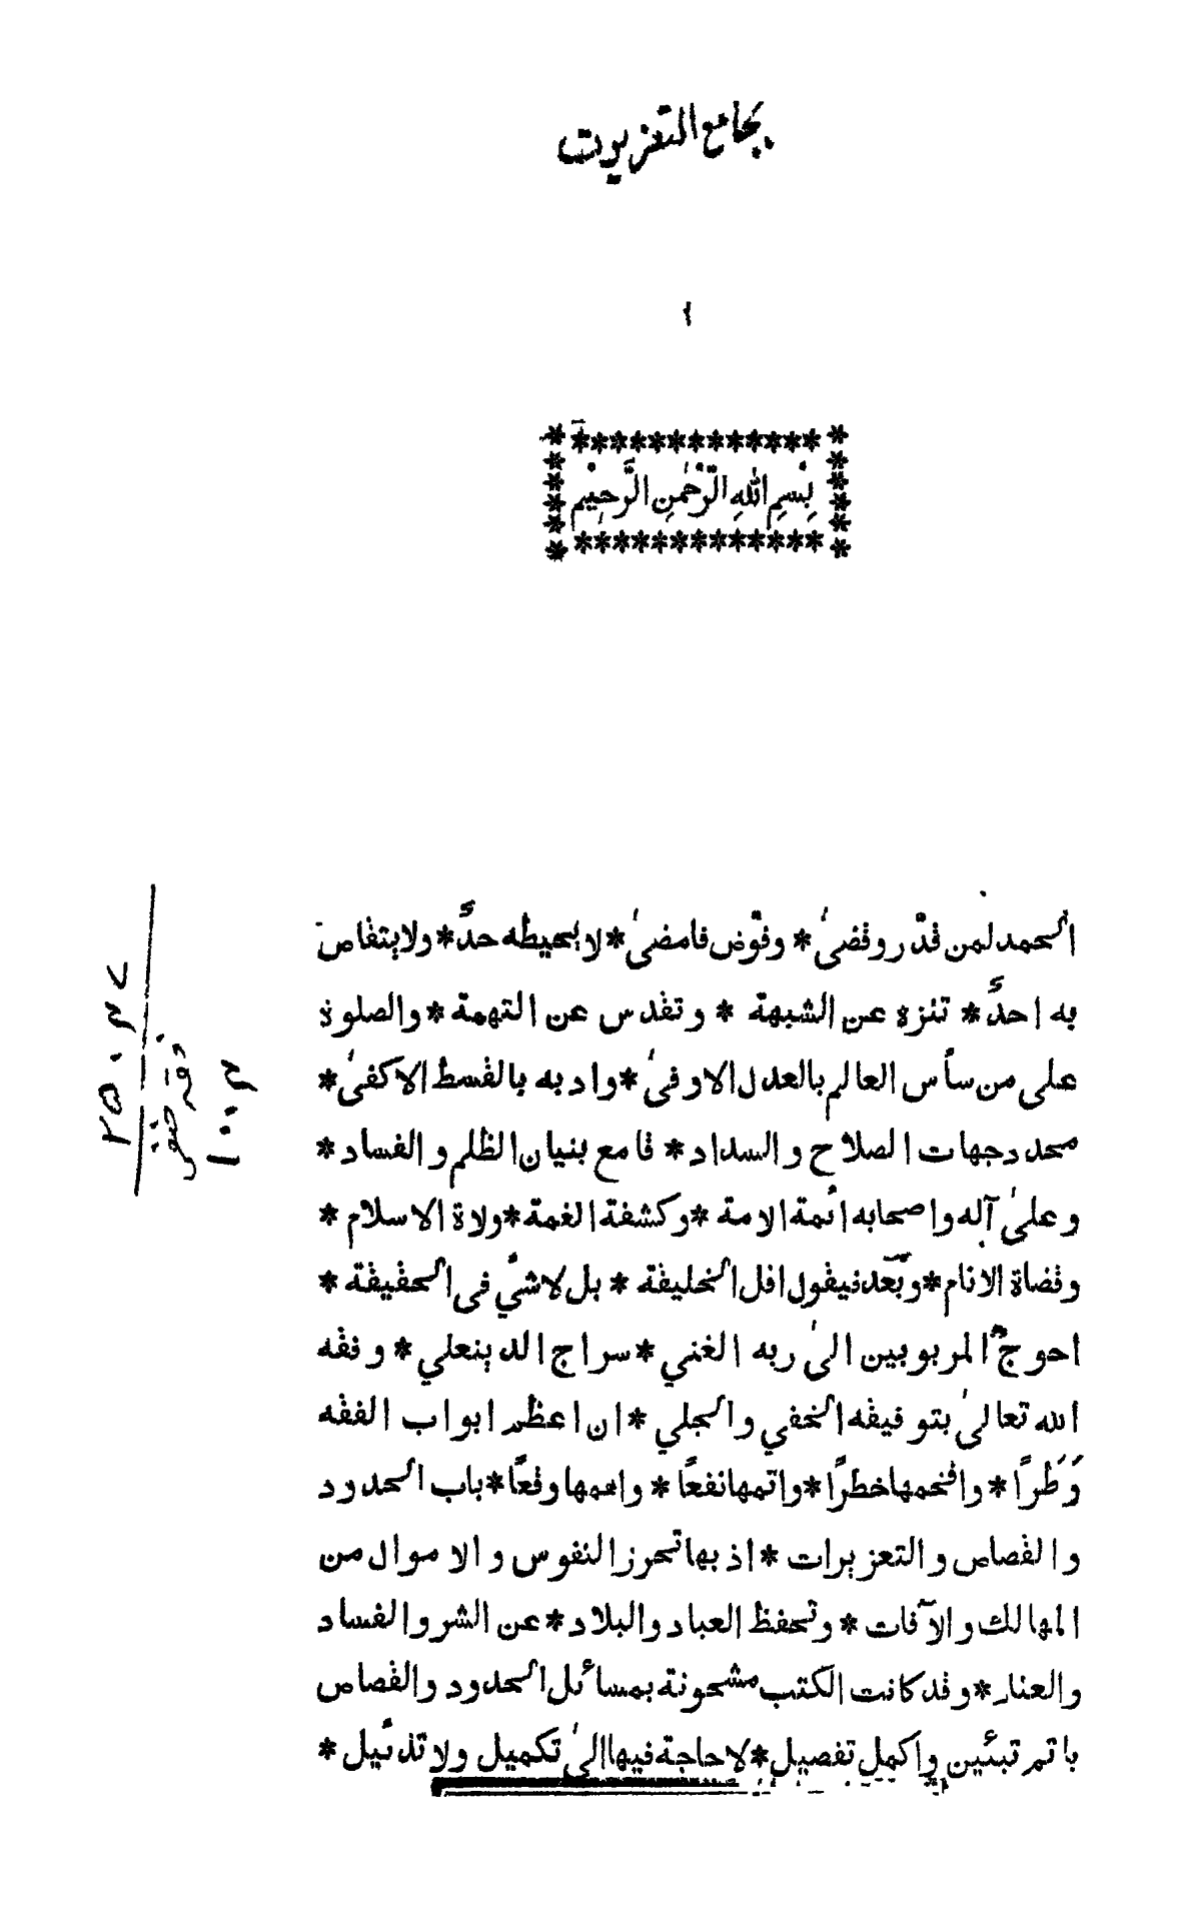 جامع التعزيرات
بِسْمِ اللهِ الرَّحْمٰنِ الرَّحِيْمِ
الحمد لمن قدّر وقضىٰ * وفوّض فامضىٰ * لا يحيطه حدٌّ * ولا يتقاص
به احدٌ * تنزه عن الشبهة * وتقدس عن التهمة * والصلوة
على من سأس العالم بالعدل الاوفىٰ * وادبه بالقسط الاكفىٰ *
محدد جهات الصلاح والسداد * قامع بنيان الظلم والفساد *
وعلىٰ آله واصحابه ائمة الامة * وكشفة الغمة * ولاة الاسلام *
وقضاة الانام * وبعد فيقول اقل الخليقة * بل لا شئ في الحقيقة *
احوج المربوبين الىٰ ربه الغني * سراج الدين علي * وفقه
الله تعالىٰ بتوفيقه الخفي والجلي * ان اعظم ابواب الفقه
وَطَرًا * وافخمها خطرًا * واتمها نفعًا * واعمها وقعًا * باب الحدود
والقصاص والتعزيرات * اذ بها تحرز النفوس والاموال من
المهالك والآفات * وتحفظ العباد والبلاد * عن الشر والفساد
والعناد * وقد كانت الكتب مشحونة بمسائل الحدود والقصاص
باتم تبئين واكمل تفصيل * لا حاجة فيها الىٰ تكميل ولا تذئيل *
٢٥٠٣٧
فقه حنفي
١٠٠٣